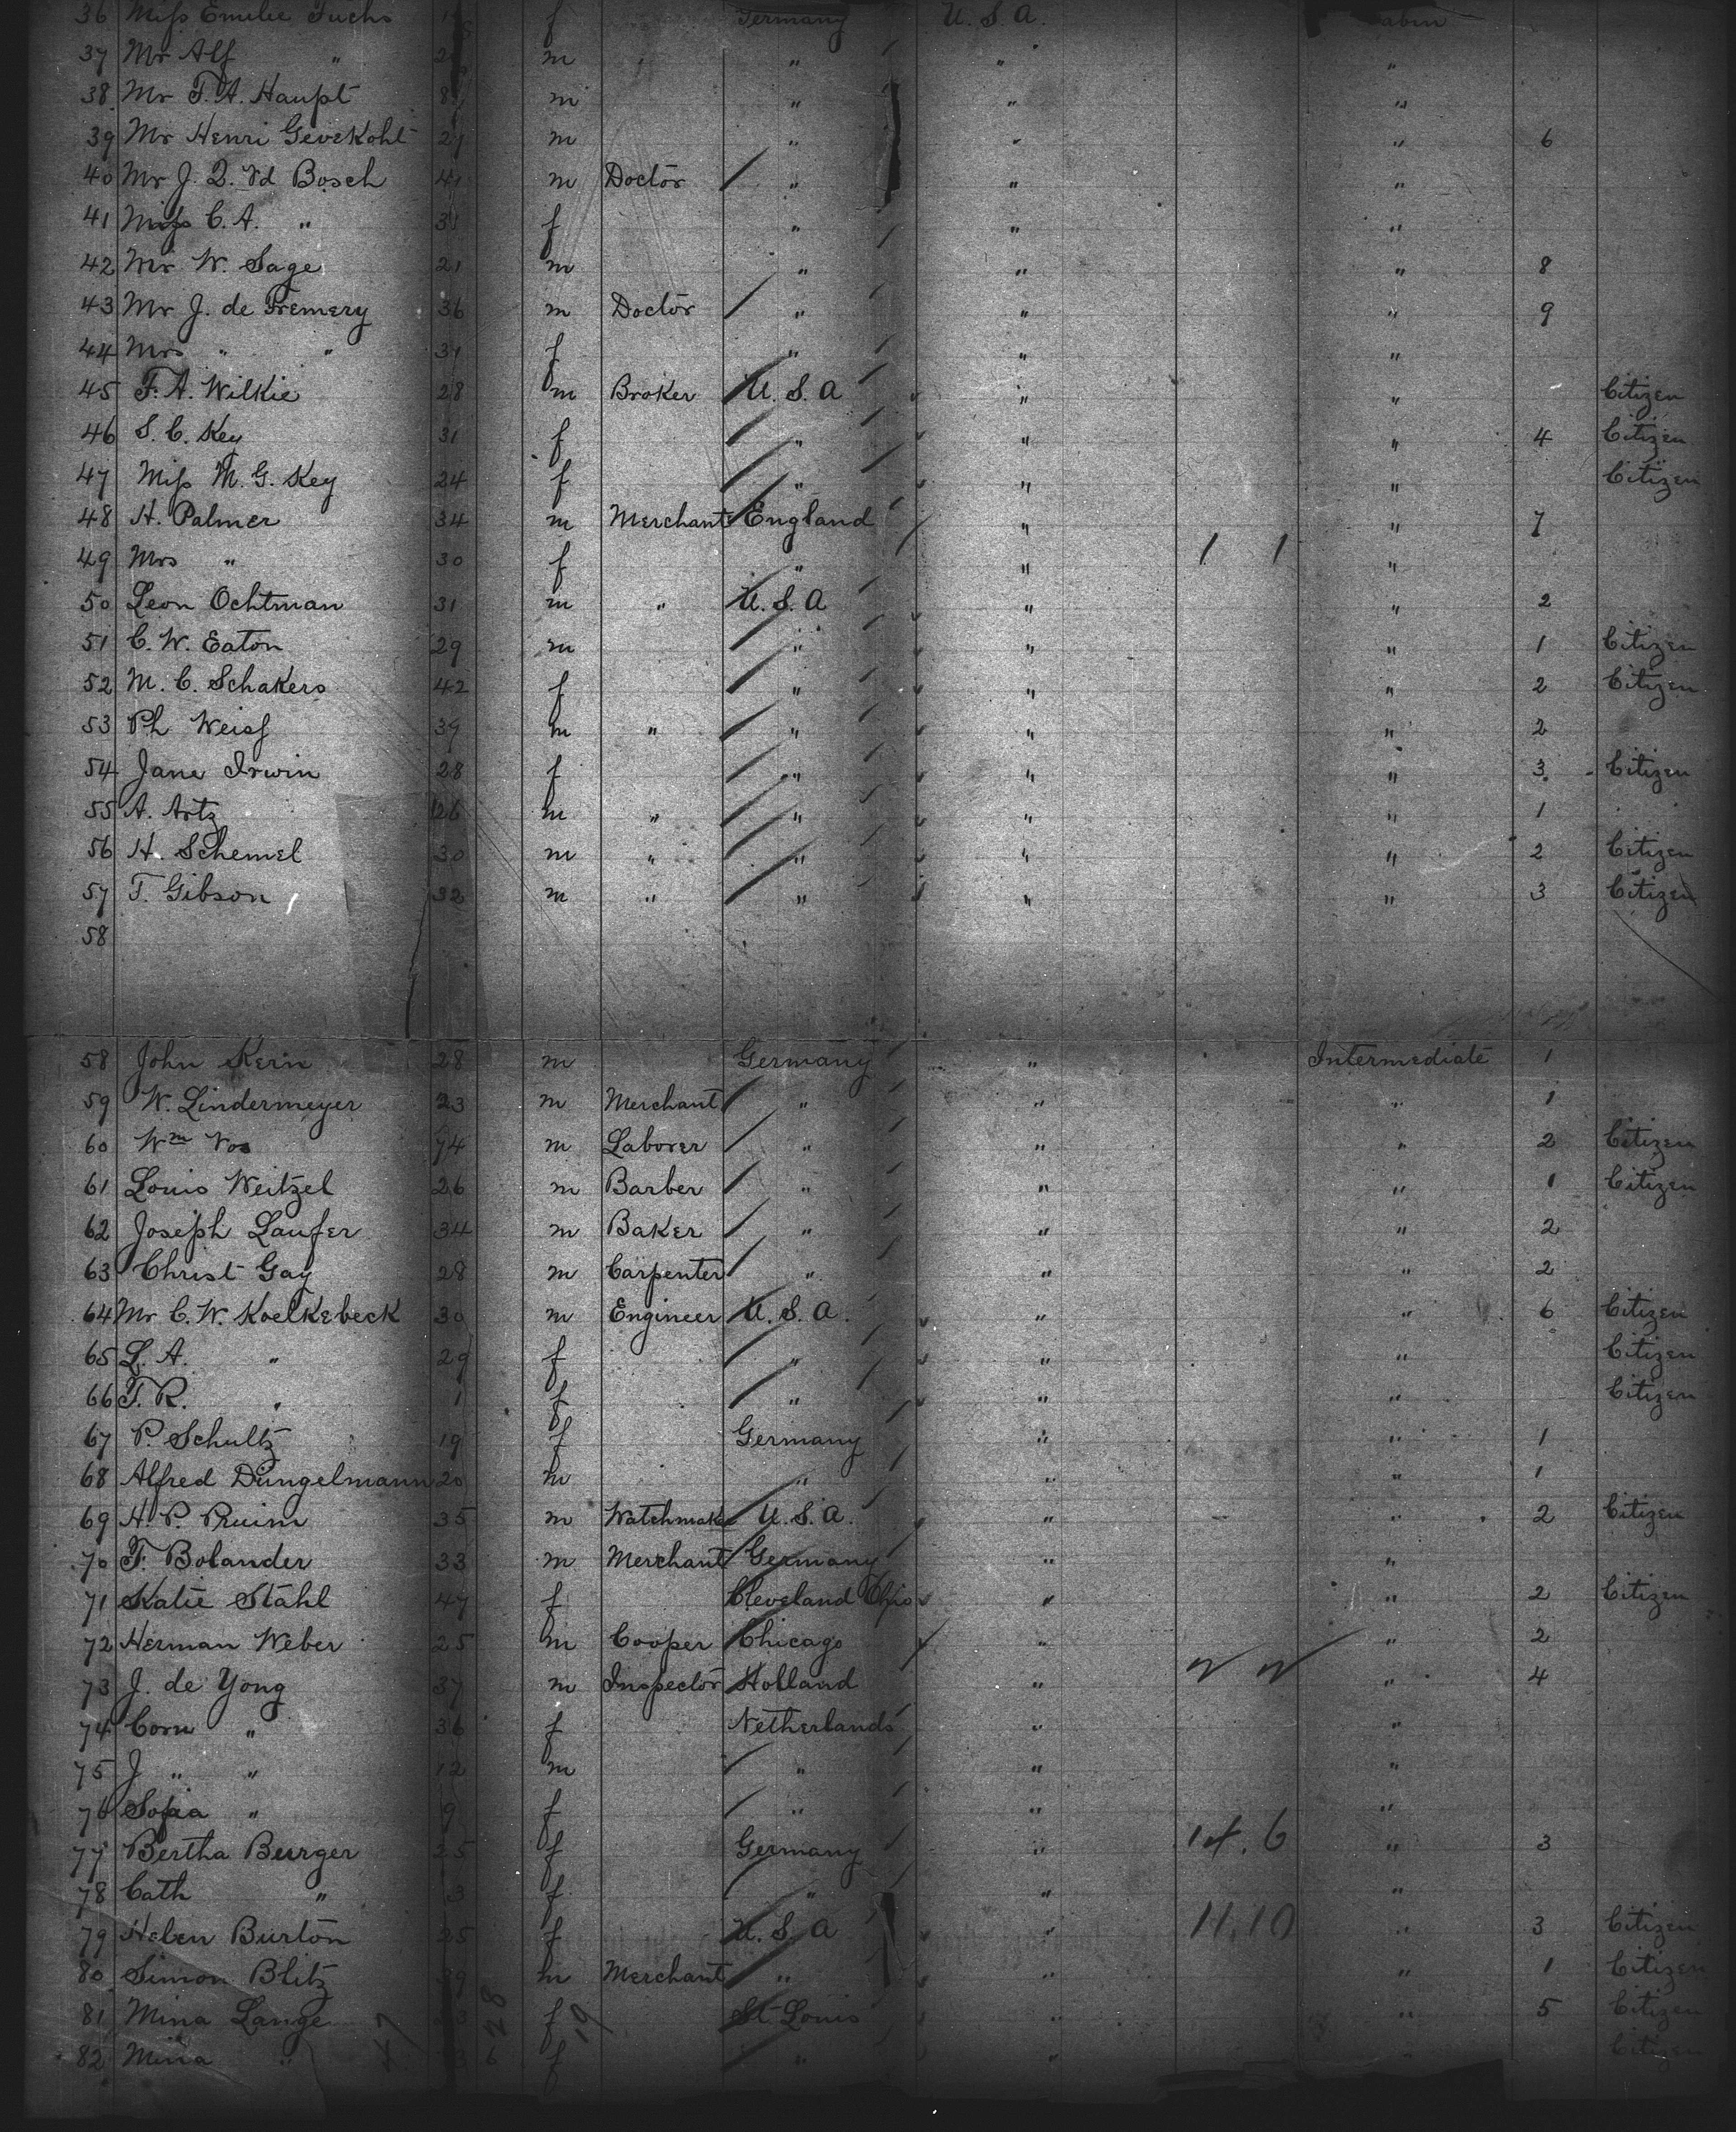 36 Miss Emilie Fuchs f Germany U. S. A. Cabin
37 Mr Alf " m " " "
38 Mr F. A. Haupt m " " "
39 Mr Henri Gevekoht 27 m " " " 6
40 Mr J. Q. vd Bosch 41 m Doctor " " "
41 Miss C. A. " 31 f " " "
42 Mr W. Sage 21 m " " " 8
43 Mr J. de Fremery 36 m Doctor " " " 9
44 Mrs " " 31 f " " "
45 F. A. Wilkie 28 m Broker U. S. A " " Citizen
46 S. C. Key 31 f " " " 4 Citizen
47 Miss M. G. Key 24 f " " " Citizen
48 H. Palmer 34 m Merchant England " " 7
49 Mrs " 30 f " " 1 1 "
50 Leon Ochtman 31 m " U. S. A " " 2
51 C. W. Eaton 29 m " " " 1 Citizen
52 M. C. Schakers 42 f " " " 2 Citizen
53 Ph Weiss 39 m " " " " 2
54 Jane Irwin 28 f " " " 3 Citizen
55 A. Artz 26 m " " " " 1
56 H. Schemel 30 m " " " " 2 Citizen
57 T. Gibson 32 m " " " " 3 Citizen
58
58 John Kern 28 m Germany " Intermediate 1
59 W. Lindermeyer 23 m Merchant " " " 1
60 Wm Vos 74 m Laborer " " " 2 Citizen
61 Louis Weitzel 26 m Barber " " " 1 Citizen
62 Joseph Laufer 34 m Baker " " " 2
63 Christ Gay 28 m Carpenter " " " 2
64 Mr C. W. Koelkebeck 30 m Engineer U. S. A. " " 6 Citizen
65 L. A. " 29 f " " " Citizen
66 F. R. " 1 f " " " Citizen
67 P. Schultz 19 f Germany " " 1
68 Alfred Dungelmann 20 m " " " 1
69 H. P. Pruim 35 m Watchmaker U. S. A. " " 2 Citizen
70 F. Bolander 33 m Merchant Germany " "
71 Katie Stahl 47 f Cleveland Ohio " " 2 Citizen
72 Herman Weber 25 m Cooper Chicago " " 2
73 J. de Yong 37 m Inspector Holland " " 4
74 Corn " 36 f Netherlands " "
75 J " " 12 m " " "
76 Sofia " 9 f " " "
77 Bertha Burger 25 f Germany " 14. 6 " 3
78 Cath " 3 f " " "
79 Helen Burton 25 f U. S. A " 11.10 " 3 Citizen
80 Simon Blitz m Merchant " " " 1 Citizen
81 Mina Lange f St. Louis " " 5 Citizen
82 Mina " 6 f " " " Citizen